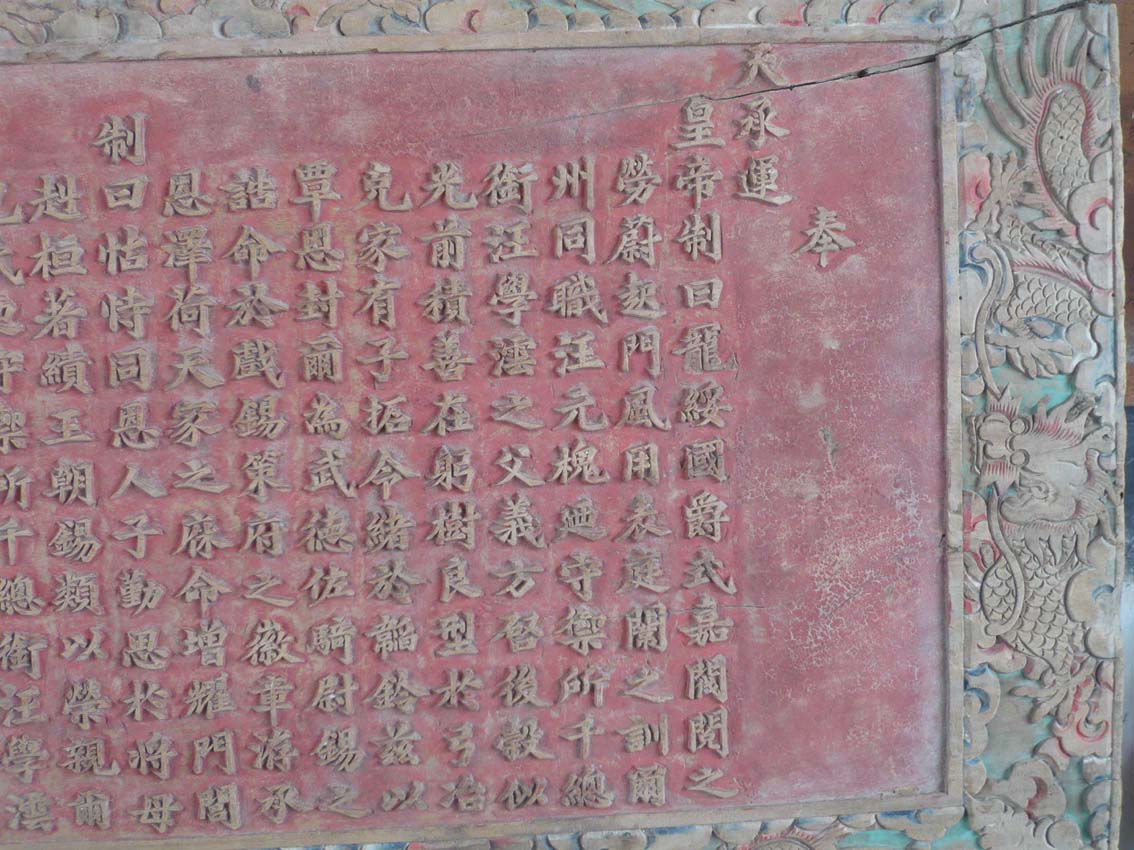 奉
天承運
皇帝制曰龍綏國爵式嘉閥閱之
勞蔚起門風用表庭闈之訓爾
州同職汪元槐迺守禦所千總
銜汪學澐之父義方啓後穀似
光前積善在躬樹良型於弓冶
克家有子拓令緒於韜鈐茲以
覃恩封爾為武德佐騎尉錫之
誥命於戲錫策府之徽章洊承
恩澤荷天家之庥命增耀門閭
制曰怙恃同恩人子勤思於將母
赳桓著績王朝錫類以榮親爾
氏迺守禦所千總銜汪學澐